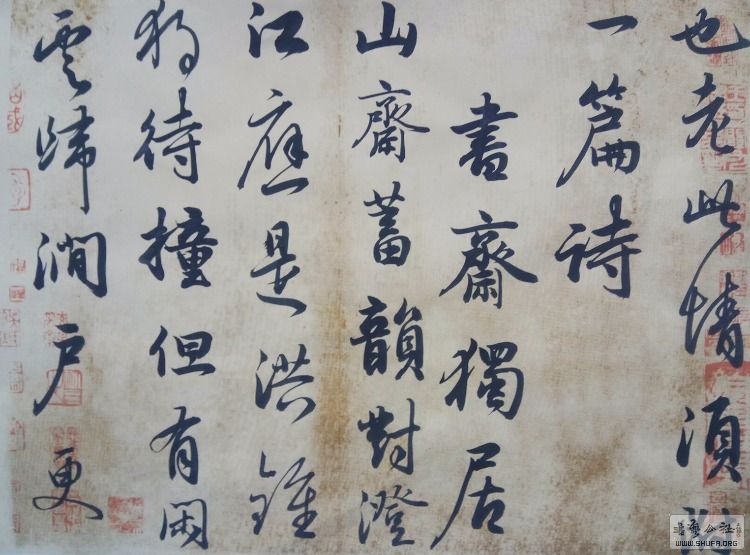 也老此情須
一篇詩
書齋獨居
山齋蓄韻對澄
江應是洪鍾
待撞但有閑
雲歸澗戶更
WWW.SHUFA.ORG